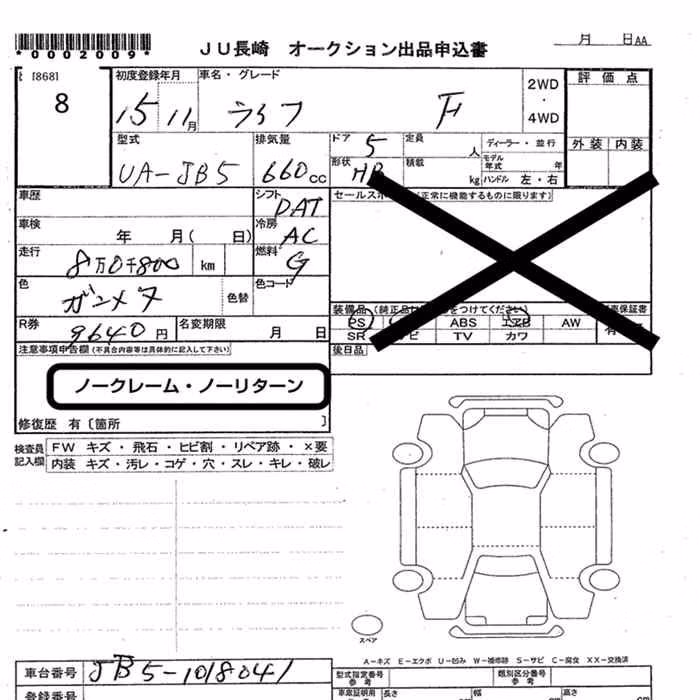 *0002009*
JU長崎 オークション出品申込書
月 日AA
[868]
8
初度登録年月
15 11月
車名・グレード
ライフ F
2WD
・
4WD
評価点
外装 内装
型式
UA-JB5
排気量
660cc
ドア
5
定員
人
ディーラー・並行
形状
HB
積載
kg
モデル年式 年
ハンドル 左・右
車歴
シフト
DAT
セールスポ (正常に機能するものに限ります)
車検
年 月( 日)
冷房
AC
走行
8万0千800 km
燃料
G
色
ガンメタ
色替
色コード
R券
9640円
名変期限
月 日
装備品(純正品 をつけてください)
車保証書
PS ABS エアB AW 有
SR ビ TV カワ
注意事項申告欄(不具合内容等は具体的に記入して下さい)
後日品
ノークレーム・ノーリターン
修復歴 有〔箇所 〕
検査員記入欄
FW キズ・飛石・ヒビ割・リペア跡・×要
内装 キズ・汚レ・コゲ・穴・スレ・キレ・破レ
スペア
A-キズ E-エクボ U-凹み W-補修跡 S-サビ C-腐食 XX-交換済
車台番号
JB5-1018041
型式指定番号
参考
類別区分番号
参考
登録番号
車庫証明用
長さ
幅
高さ
cm